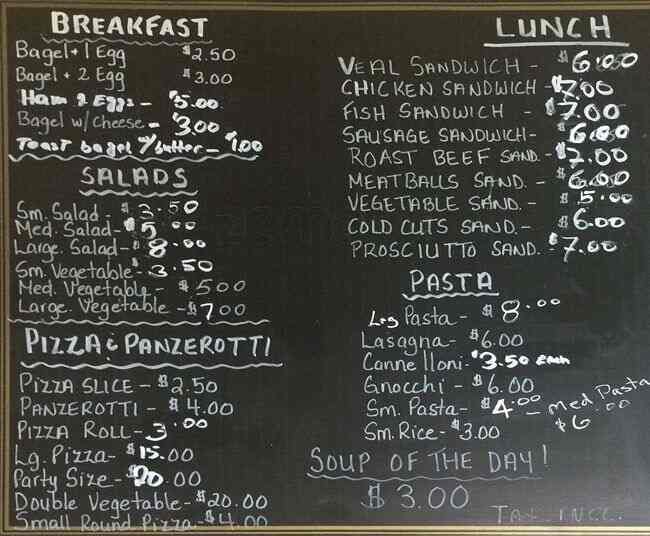 BREAKFAST
Bagel + 1 Egg $2.50
Bagel + 2 Egg $3.00
Ham & Eggs - $5.00
Bagel w/ Cheese - $3.00
Toast bagel w/butter - $1.00
SALADS
Sm. Salad - $3.50
Med. Salad - $5.00
Large. Salad - $8.00
Sm. Vegetable - $3.50
Med. Vegetable - $5.00
Large. Vegetable - $7.00
PIZZA & PANZEROTTI
PIZZA SLICE - $2.50
PANZEROTTI - $4.00
PIZZA ROLL - 3.00
Lg. Pizza - $15.00
Party Size - $20.00
Double Vegetable - $20.00
Small Round Pizza - $4.00
LUNCH
VEAL SANDWICH - $6.00
CHICKEN SANDWICH $7.00
FISH SANDWICH - $7.00
SAUSAGE SANDWICH - $6.00
ROAST BEEF SAND. - $7.00
MEATBALLS SAND. - $6.00
VEGETABLE SAND. - $5.00
COLD CUTS SAND. - $6.00
PROSCIUTTO SAND. - $7.00
PASTA
Lrg Pasta - $8.00
Lasagna - $6.00
Cannelloni - $3.50 each
Gnocchi - $6.00
Sm. Pasta - $4.00 - Med Pasta
$6.00
Sm. Rice - $3.00
SOUP OF THE DAY!
$3.00
TAX INCL.